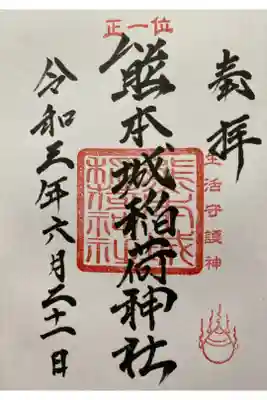 奉拝
生活守護神
正一位
熊本城稲荷神社
令和三年六月二十一日